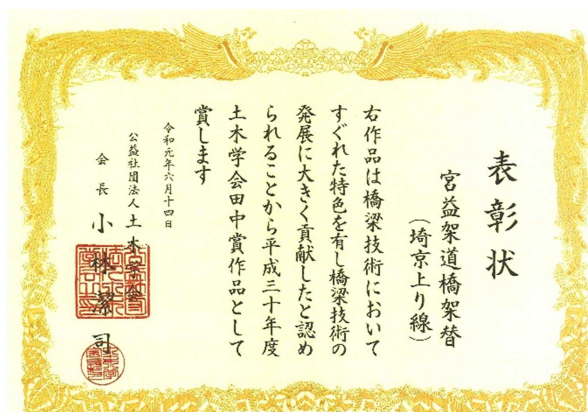 表彰状
宮益架道橋架替
(埼京上り線)
右作品は橋梁技術において
すぐれた特色を有し橋梁技術の
発展に大きく貢献したと認め
られることから平成三十年度
土木学会田中賞作品として
賞します
令和元年六月十四日
公益社団法人 土木学会
会長 小林潔司